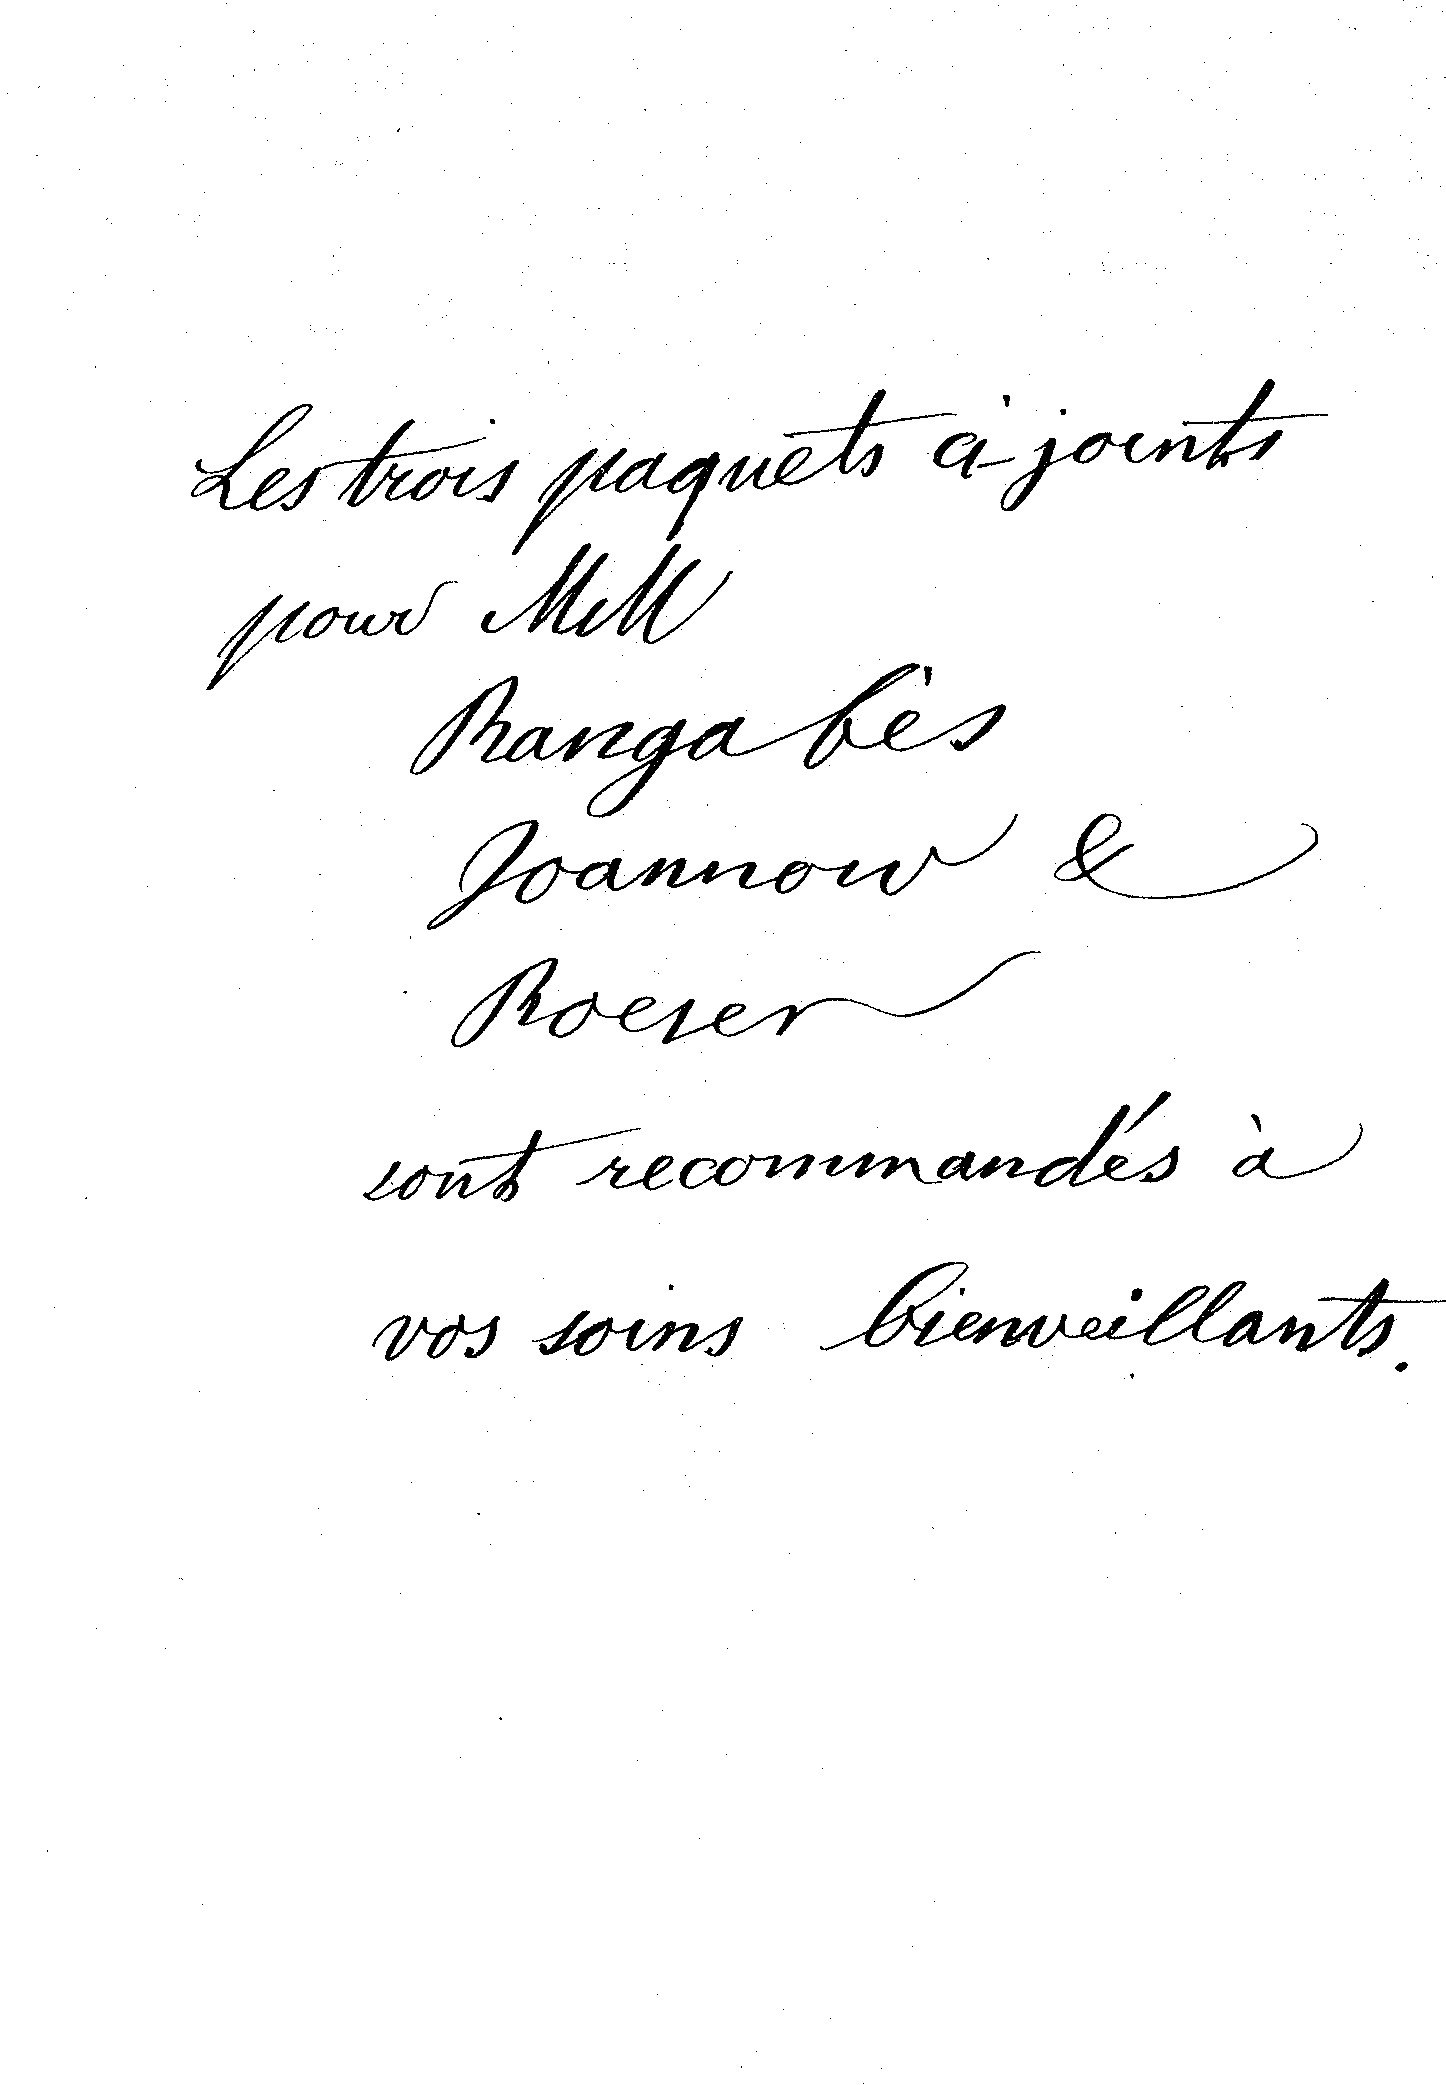 Les trois paquets ci-joints
pour MM
Rangabès
Joannou &
Roeser
sont recommandés à
vos soins bienveillants.